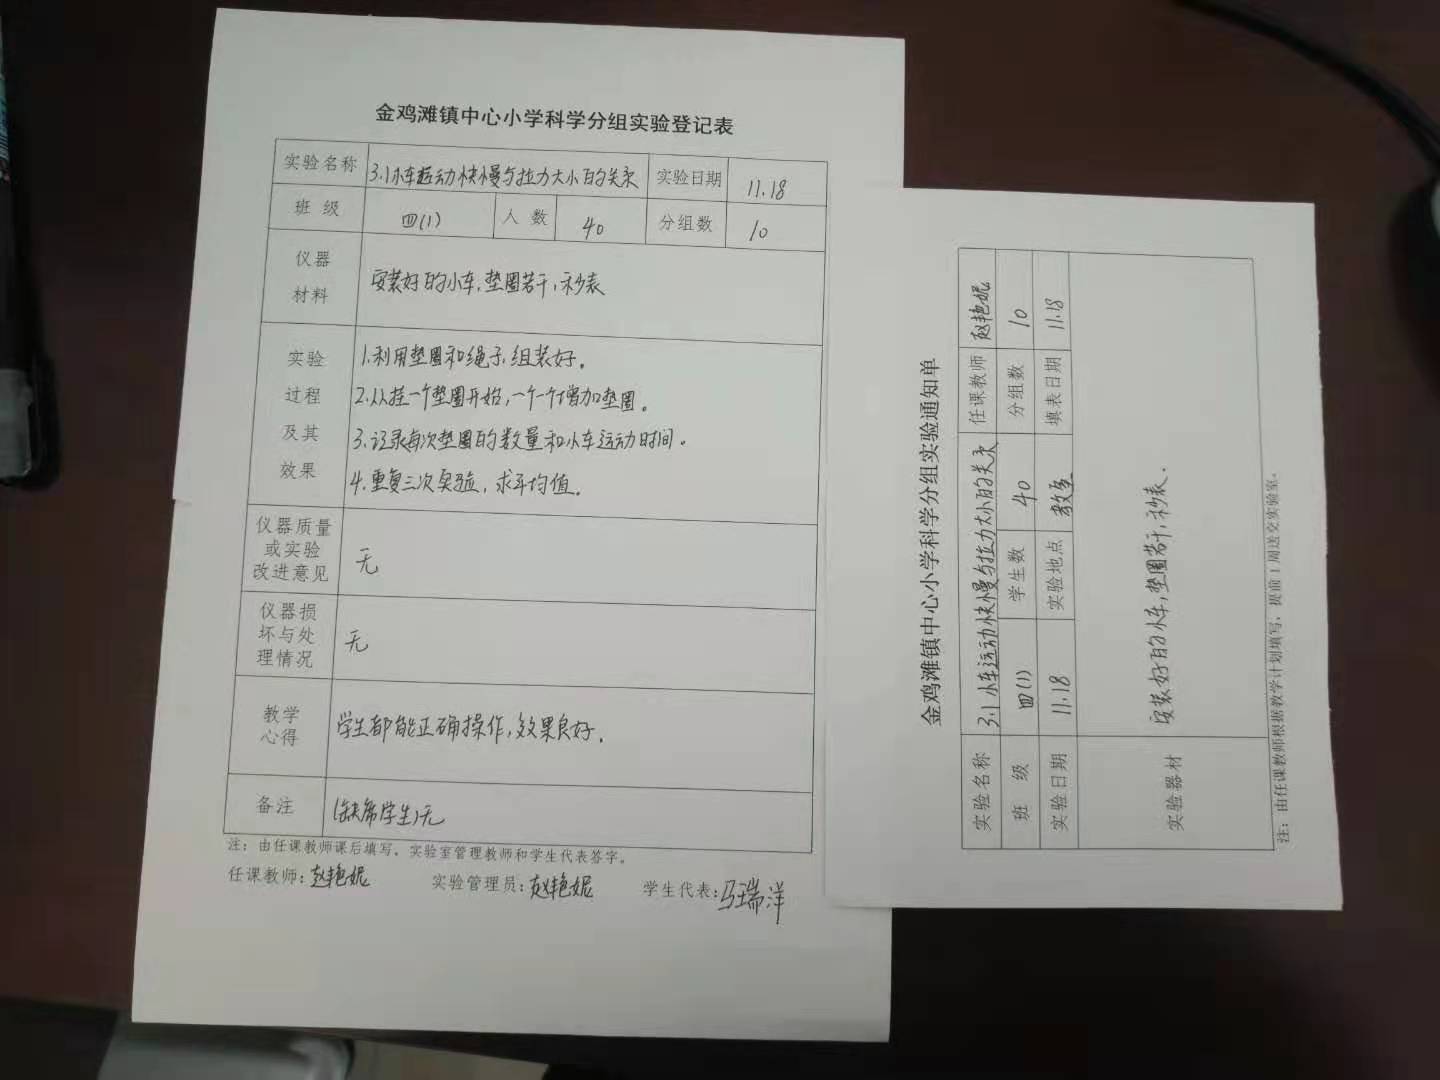 金鸡滩镇中心小学科学分组实验登记表
实验名称 3.1小车运动快慢与拉力大小的关系 实验日期 11.18
班 级 四(1) 人 数 40 分组数 10
仪器
材料
安装好的小车,垫圈若干,秒表
实验
过程
及其
效果
1.利用垫圈和绳子,组装好。
2.从挂一个垫圈开始,一个一个增加垫圈。
3.记录每次垫圈的数量和小车运动时间。
4.重复三次实验,求平均值。
仪器质量
或实验
改进意见
无
仪器损
坏与处
理情况
无
教学
心得
学生都能正确操作,效果良好。
备注 (缺席学生)无
注:由任课教师课后填写,实验室管理教师和学生代表签字。
任课教师:赵艳妮 实验管理员:赵艳妮 学生代表:马瑞洋
金鸡滩镇中心小学科学分组实验通知单
实验名称 3.1小车运动快慢与拉力大小的关系 任课教师 赵艳妮
班 级 四(1) 学生数 40 分组数 10
实验日期 11.18 实验地点 教室 填表日期 11.18
实验器材 安装好的小车,垫圈若干,秒表.
注:由任课教师根据教学计划填写,提前1周送交实验室。